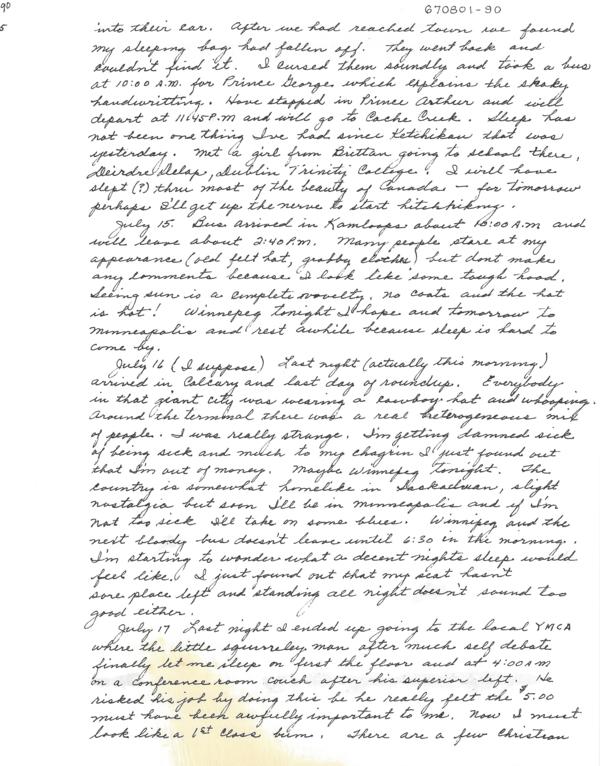 90
670801-90
5
into their car. After we had reached town we found
my sleeping bag had fallen off. They went back and
couldn't find it. I cursed them soundly and took a bus
at 10:00 A.M. for Prince George which explains the shaky
handwritting. Have stopped in Prince Arther and will
depart at 11:45 P.M and will go to Cache Creek. Sleep has
not been one thing I've had since Ketchikan that was
yesterday. Met a girl from Brittan going to school there,
Deirdre Delap, Dublin Trinity College. I will have
slept (?) thru most of the beauty of Canada — for tomorrow
perhaps I'll get up the nerve to start hitchhiking.
July 15. Bus arrived in Kamloops about 10:00 A.M and
will leave about 2:40 P.M. Many people stare at my
appearance (old felt hat, grabby clothes) but dont make
any comments because I look like some tough hood.
Seeing sun is a complete novelty, no coats and the hat
is hot! Winnepeg tonight I hope and tomorrow to
Minneapolis and rest awhile because sleep is hard to
come by.
July 16 (I suppose) Last night (actually this morning)
arrived in Calcary and last day of roundup. Everybody
in that giant city was wearing a cowboy hat and whooping.
Around the terminal there was a real heterogeneous mix
of people. I was really strange. I'm getting damned sick
of being sick and much to my chagrin I just found out
that I'm out of money. Maybe Winnepeg tonight. The
country is somewhat homelike in Saskachuan, slight
nostalgia but soon I'll be in Minneapolis and if I'm
not too sick I'll take on some blues. Winnipeg and the
next bloody bus doesn't leave until 6:30 in the morning.
I'm starting to wonder what a decent nights sleep would
feel like. I just found out that my seat hasn't
sore place left and standing all night doesn't sound too
good either.
July 17 Last night I ended up going to the local YMCA
where the little squirreley man after much self debate
finally let me sleep on first the floor and at 4:00 A M
on a conference room couch after his superior left. He
risked his job by doing this be he really felt the $5.00
must have been awfully important to me. Now I must
look like a 1st Class bum. There are a few Christian